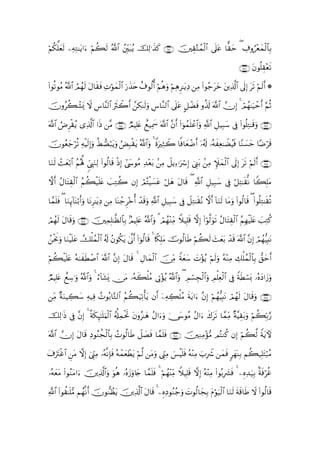 بِٱلْمَعْرُوفِ ۖ حَقًّا عَلَى ٱلْمُتَّقِينَ ﴿٢٤١﴾ كَذَٰلِكَ يُبَيِّنُ ٱللَّهُ لَكُمْ ءَايَـٰتِهِۦ لَعَلَّكُمْ
تَعْقِلُونَ ﴿٢٤٢﴾
۞ أَلَمْ تَرَ إِلَى ٱلَّذِينَ خَرَجُوا۟ مِن دِيَـٰرِهِمْ وَهُمْ أُلُوفٌ حَذَرَ ٱلْمَوْتِ فَقَالَ لَهُمُ ٱللَّهُ مُوتُوا۟
ثُمَّ أَحْيَـٰهُمْ ۚ إِنَّ ٱللَّهَ لَذُو فَضْلٍ عَلَى ٱلنَّاسِ وَلَـٰكِنَّ أَكْثَرَ ٱلنَّاسِ لَا يَشْكُرُونَ ﴿٢٤٣﴾
وَقَـٰتِلُوا۟ فِى سَبِيلِ ٱللَّهِ وَٱعْلَمُوٓا۟ أَنَّ ٱللَّهَ سَمِيعٌ عَلِيمٌ ﴿٢٤٤﴾ مَّن ذَا ٱلَّذِى يُقْرِضُ ٱللَّهَ
قَرْضًا حَسَنًا فَيُضَـٰعِفَهُۥ لَهُۥٓ أَضْعَافًا كَثِيرَةً ۚ وَٱللَّهُ يَقْبِضُ وَيَبْصُۜطُ وَإِلَيْهِ تُرْجَعُونَ ﴿٢٤٥﴾
أَلَمْ تَرَ إِلَى ٱلْمَلَإِ مِنۢ بَنِىٓ إِسْرَٰٓءِيلَ مِنۢ بَعْدِ مُوسَىٰٓ إِذْ قَالُوا۟ لِنَبِىٍّ لَّهُمُ ٱبْعَثْ لَنَا
مَلِكًا نُّقَـٰتِلْ فِى سَبِيلِ ٱللَّهِ ۖ قَالَ هَلْ عَسَيْتُمْ إِن كُتِبَ عَلَيْكُمُ ٱلْقِتَالُ أَلَّا
تُقَـٰتِلُوا۟ ۖ قَالُوا۟ وَمَا لَنَآ أَلَّا نُقَـٰتِلَ فِى سَبِيلِ ٱللَّهِ وَقَدْ أُخْرِجْنَا مِن دِيَـٰرِنَا وَأَبْنَآئِنَا ۖ فَلَمَّا
كُتِبَ عَلَيْهِمُ ٱلْقِتَالُ تَوَلَّوْا۟ إِلَّا قَلِيلًا مِّنْهُمْ ۗ وَٱللَّهُ عَلِيمٌۢ بِٱلظَّـٰلِمِينَ ﴿٢٤٦﴾ وَقَالَ لَهُمْ
نَبِيُّهُمْ إِنَّ ٱللَّهَ قَدْ بَعَثَ لَكُمْ طَالُوتَ مَلِكًا ۚ قَالُوٓا۟ أَنَّىٰ يَكُونُ لَهُ ٱلْمُلْكُ عَلَيْنَا وَنَحْنُ
أَحَقُّ بِٱلْمُلْكِ مِنْهُ وَلَمْ يُؤْتَ سَعَةً مِّنَ ٱلْمَالِ ۚ قَالَ إِنَّ ٱللَّهَ ٱصْطَفَىٰهُ عَلَيْكُمْ
وَزَادَهُۥ بَسْطَةً فِى ٱلْعِلْمِ وَٱلْجِسْمِ ۖ وَٱللَّهُ يُؤْتِى مُلْكَهُۥ مَن يَشَآءُ ۚ وَٱللَّهُ وَٰسِعٌ عَلِيمٌ
﴿٢٤٧﴾ وَقَالَ لَهُمْ نَبِيُّهُمْ إِنَّ ءَايَةَ مُلْكِهِۦٓ أَن يَأْتِيَكُمُ ٱلتَّابُوتُ فِيهِ سَكِينَةٌ مِّن
رَّبِّكُمْ وَبَقِيَّةٌ مِّمَّا تَرَكَ ءَالُ مُوسَىٰ وَءَالُ هَـٰرُونَ تَحْمِلُهُ ٱلْمَلَـٰٓئِكَةُ ۚ إِنَّ فِى ذَٰلِكَ
لَـَٔايَةً لَّكُمْ إِن كُنتُم مُّؤْمِنِينَ ﴿٢٤٨﴾ فَلَمَّا فَصَلَ طَالُوتُ بِٱلْجُنُودِ قَالَ إِنَّ ٱللَّهَ
مُبْتَلِيكُم بِنَهَرٍ فَمَن شَرِبَ مِنْهُ فَلَيْسَ مِنِّى وَمَن لَّمْ يَطْعَمْهُ فَإِنَّهُۥ مِنِّىٓ إِلَّا مَنِ ٱغْتَرَفَ
غُرْفَةًۢ بِيَدِهِۦ ۚ فَشَرِبُوا۟ مِنْهُ إِلَّا قَلِيلًا مِّنْهُمْ ۚ فَلَمَّا جَاوَزَهُۥ هُوَ وَٱلَّذِينَ ءَامَنُوا۟ مَعَهُۥ
قَالُوا۟ لَا طَاقَةَ لَنَا ٱلْيَوْمَ بِجَالُوتَ وَجُنُودِهِۦ ۚ قَالَ ٱلَّذِينَ يَظُنُّونَ أَنَّهُم مُّلَـٰقُوا۟ ٱللَّهِ